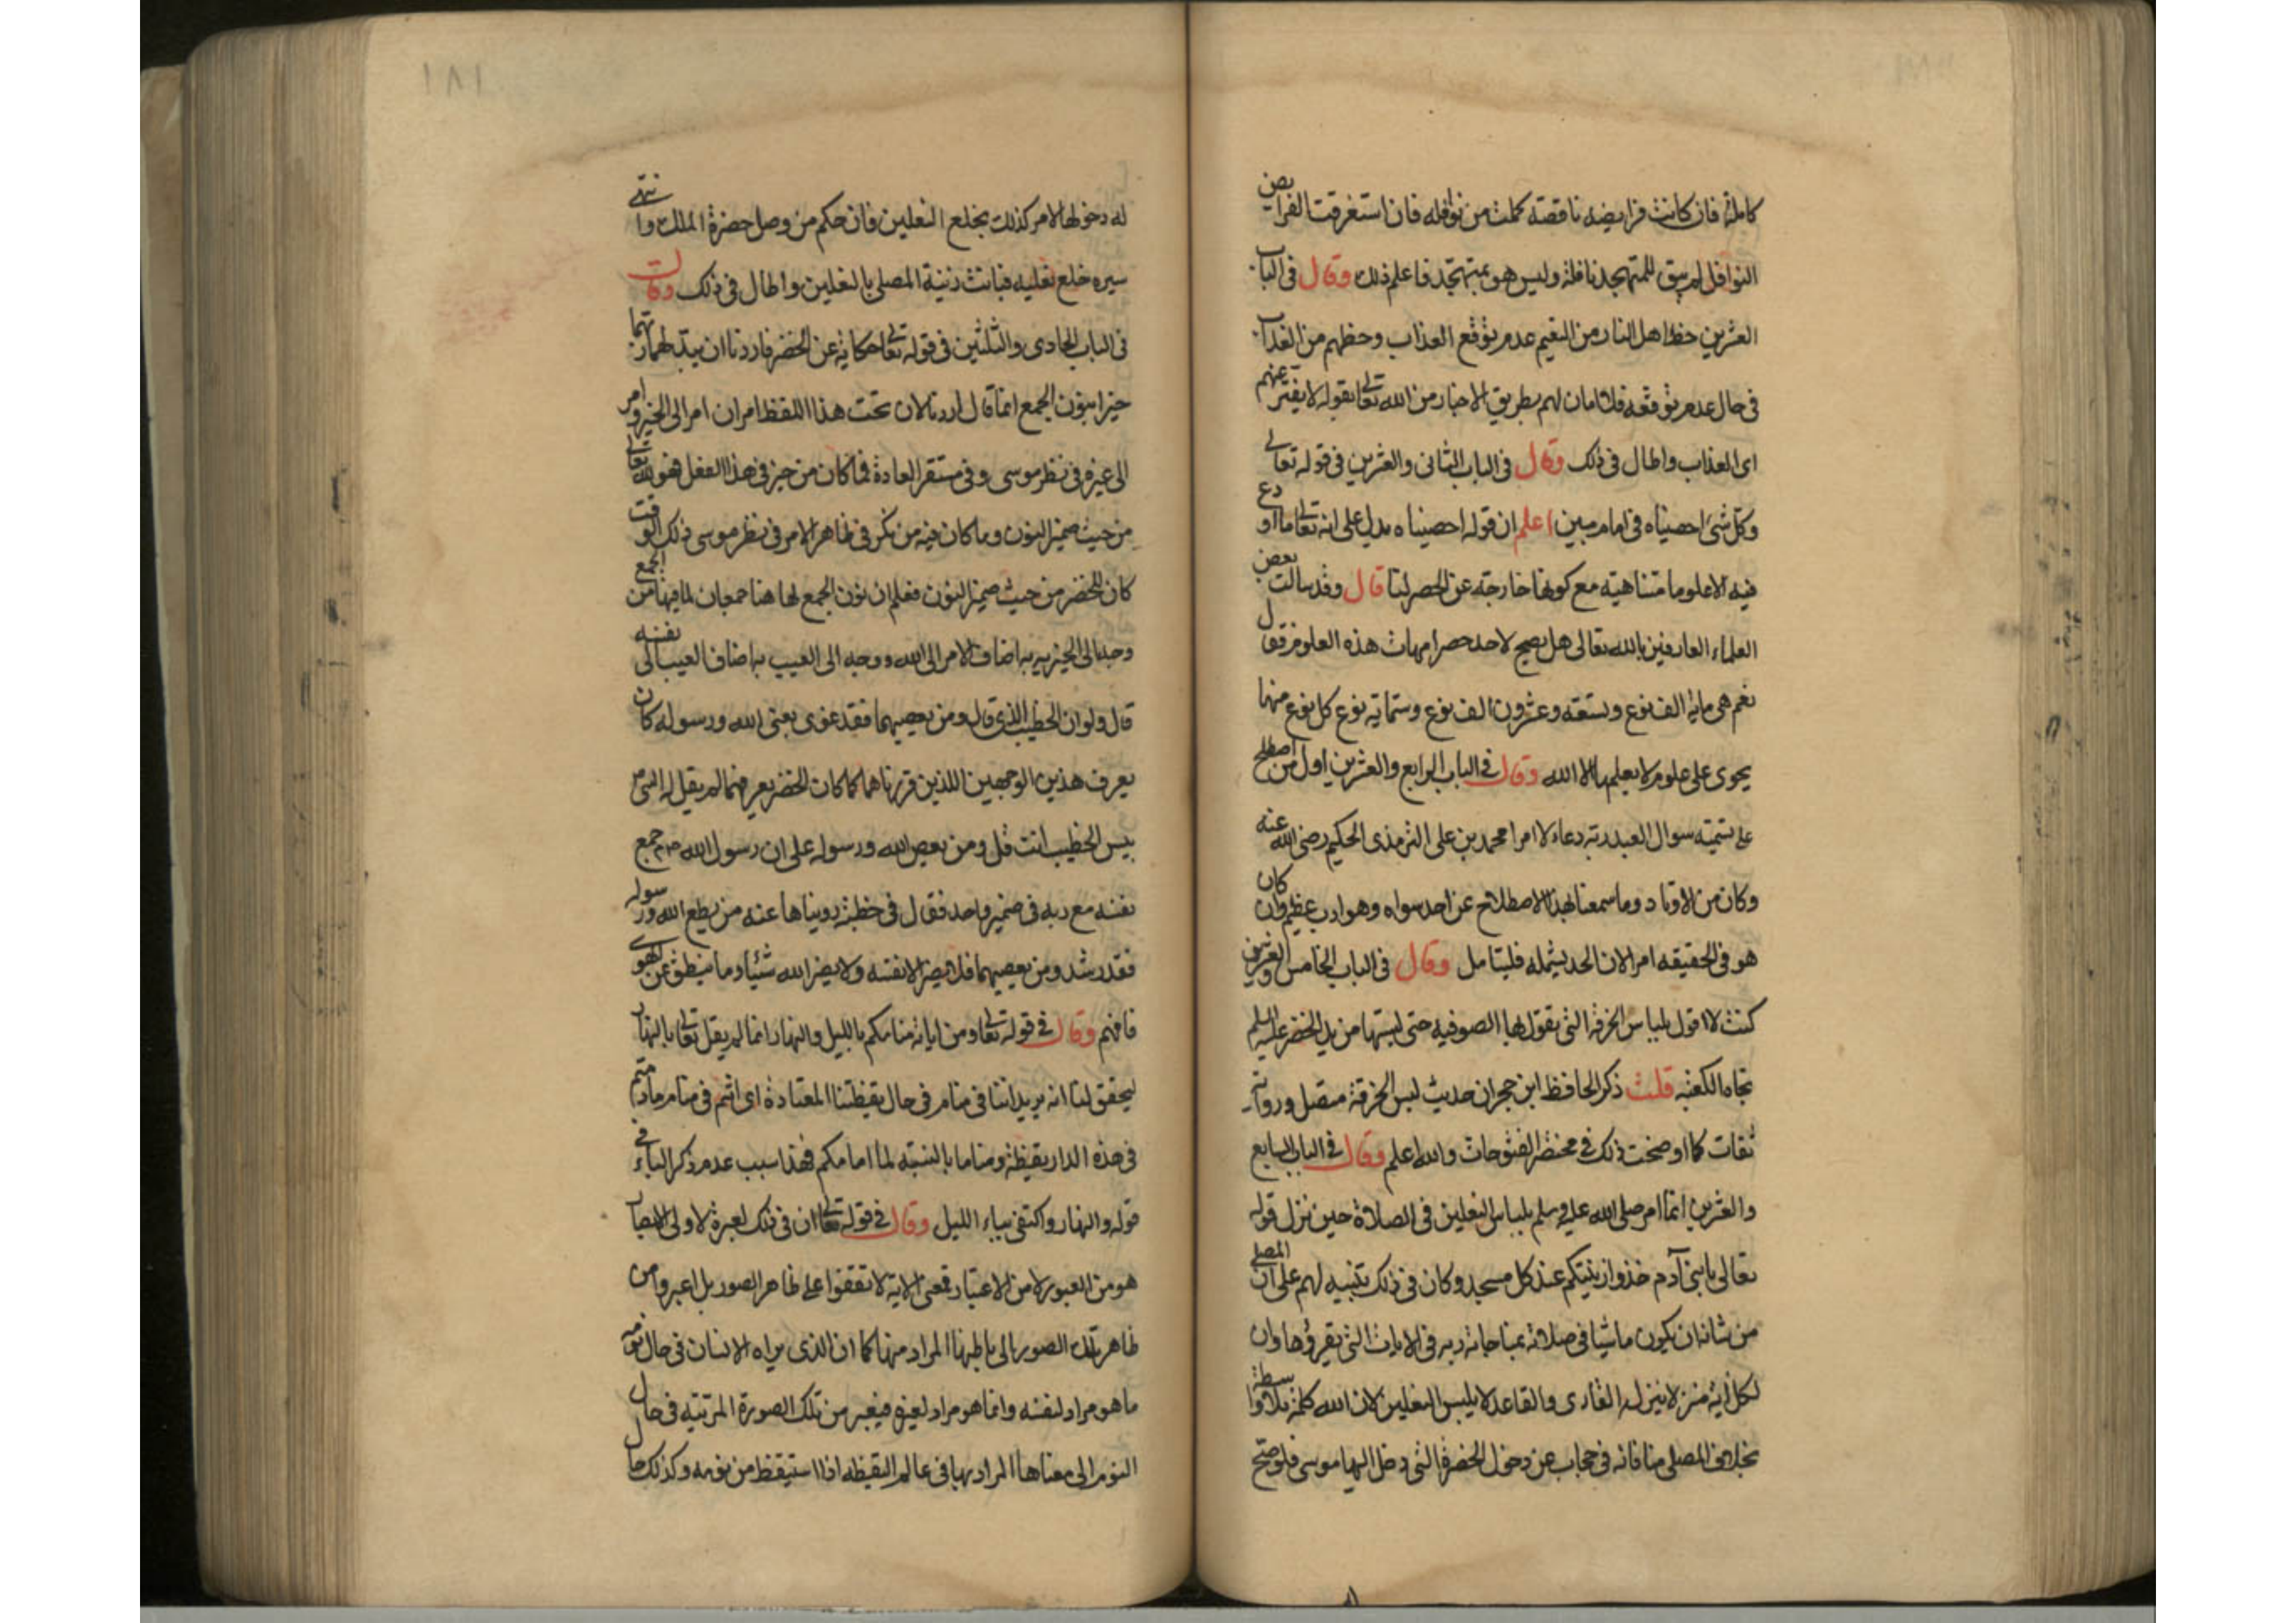 كاملة فان كانت فرايضه ناقصة كملت من نوافله فان استغرقت الفرايض
النوافل لم يبق للمتهجد نافلة وليس هو بمتهجد فاعلم ذلك وقال في الباب
العشرين حظ اهل النار من النعيم عدم توقع العذاب وحظهم من العذاب
في حال عدم توقعه فلا امان لهم بطريق الاخبار من الله تعالى بقوله لا يفتر عنهم
اي العذاب واطال في ذلك وقال في الباب الثاني والعشرين في قوله تعالى
وكل شئ احصيناه في امام مبين اعلم ان قوله احصيناه يدل على انه تعالى ما اودع
فيه الا علوما متناهية مع كونها خارجة عن الحصر لنا قال وقد سالت بعض
العلماء العارفين بالله تعالى هل يصح لاحد حصر امهات هذه العلوم فقال
نعم هي ماية الف نوع وتسعة وعشرون الف نوع وستماية نوع كل نوع منها
يحوى على علوم لا يعلمها الا الله وقال في الباب الرابع والعشرين اول من اصطلح
على تسمية سوال العبد ربه دعاء لا امرا محمد بن علي الترمذي الحكيم رضي الله عنه
وكان من الاوتاد وما سمعنا بهذا الاصطلاح عن احد سواه وهو ادب عظيم وان كان
هو في الحقيقه امر الان الحد يشمله فليتامل وقال في الباب الخامس والعشرين
كنت لا اقول بلباس الخرقة التي تقول بها الصوفيه حتى لبستها من يد الخضر عليه السلم
تجاه الكعبه قلت ذكر الحافظ ابن حجر ان حديث لبس الخرقة متصل ورواته
ثقات كما اوضحت ذلك في مختصر الفتوحات والله اعلم وقال في الباب السابع
والعشرين انما امر صلى الله عليه وسلم بلباس النعلين في الصلاة حين نزل قوله
تعالى يا بني آدم خذوا زينتكم عند كل مسجد وكان في ذلك تنبيه لهم على ان المصلي
من شانه ان يكون ماشيا في صلاته بمناجاة ربه في الايات التي يقرؤها وان
لكل آية منزلا ينزله القارى والقاعد لا يلبس النعلين لان الله كلمه بلا واسطة
بخلاف المصلي منا فانه في حجاب عن دخول الحضرة التي دخل اليها موسى فلو صح
١٨١
له دخولها لامر كذلك بخلع النعلين فان حكم من وصل حضرة الملك وانتهى
سيره خلع نعليه فبانت رتبة المصلي بالنعلين واطال في ذلك وقال
في الباب الحادى والثلثين في قوله تعالى حكاية عن الخضر فاردنا ان يبدلهما ربهما
خيرا بنون الجمع انما قال اردنا لان تحت هذا اللفظ امران امر الى الخير وامر
الى غيره في نظر موسى وفي مستقر العادة فما كان من خير في هذا الفعل فهو لله تعالى
من حيث ضمير النون وما كان فيه من نكر في ظاهر الامر في نظر موسى ذلك الوقت
كان للخضر من حيث ضمير النون فعلم ان نون الجمع لها هنا وجهان لما فيها من الجمع
وجه الى الخيريه به اضاف الامر الى الله ووجه الى العيب به اضاف العيب الى نفسه
قال ولو ان الخطيب الذي قال ومن يعصيهما فقد غوى يعني الله ورسوله كان
يعرف هذين الوجهين اللذين قررناهما كما كان الخضر يعرفهما لم يقل له النبي
بيس الخطيب انت قل ومن يعص الله ورسوله على ان رسول الله جمع
نفسه مع ربه في ضمير واحد فقال في خطبة رويناها عنه من يطع الله ورسوله
فقد رشد ومن يعصيهما فلا يضر الا نفسه ولا يضر الله شيئا وما ينطق عن الهوى
فافهم وقال في قوله تعالى ومن اياته منامكم بالليل والنهار انما لم يقل تعالى بالنهار
ليحقق لنا انه يريد اننا في منام في حال يقظتنا المعتادة اى انتم في منام ما دمتم
في هذه الدار يقظة ومناما بالنسبة لما امامكم فهذا سبب عدم ذكر الباء في
قوله والنهار واكتفى بباء الليل وقال في قوله تعالى ان في ذلك لعبرة لاولى الابصار
هو من العبور لا من الاعتبار فمعنى الاية لا تقفوا على ظاهر الصور بل اعبروا من
ظاهر تلك الصور الى باطنها المراد منها كما ان الذي يراه الانسان في حال نومه
ما هو مراد لنفسه وانما هو مراد لغيره فيعبر من تلك الصورة المرئية في حال
النوم الى معناها المراد بها في عالم اليقظه اذا استيقظ من نومه وكذلك حال